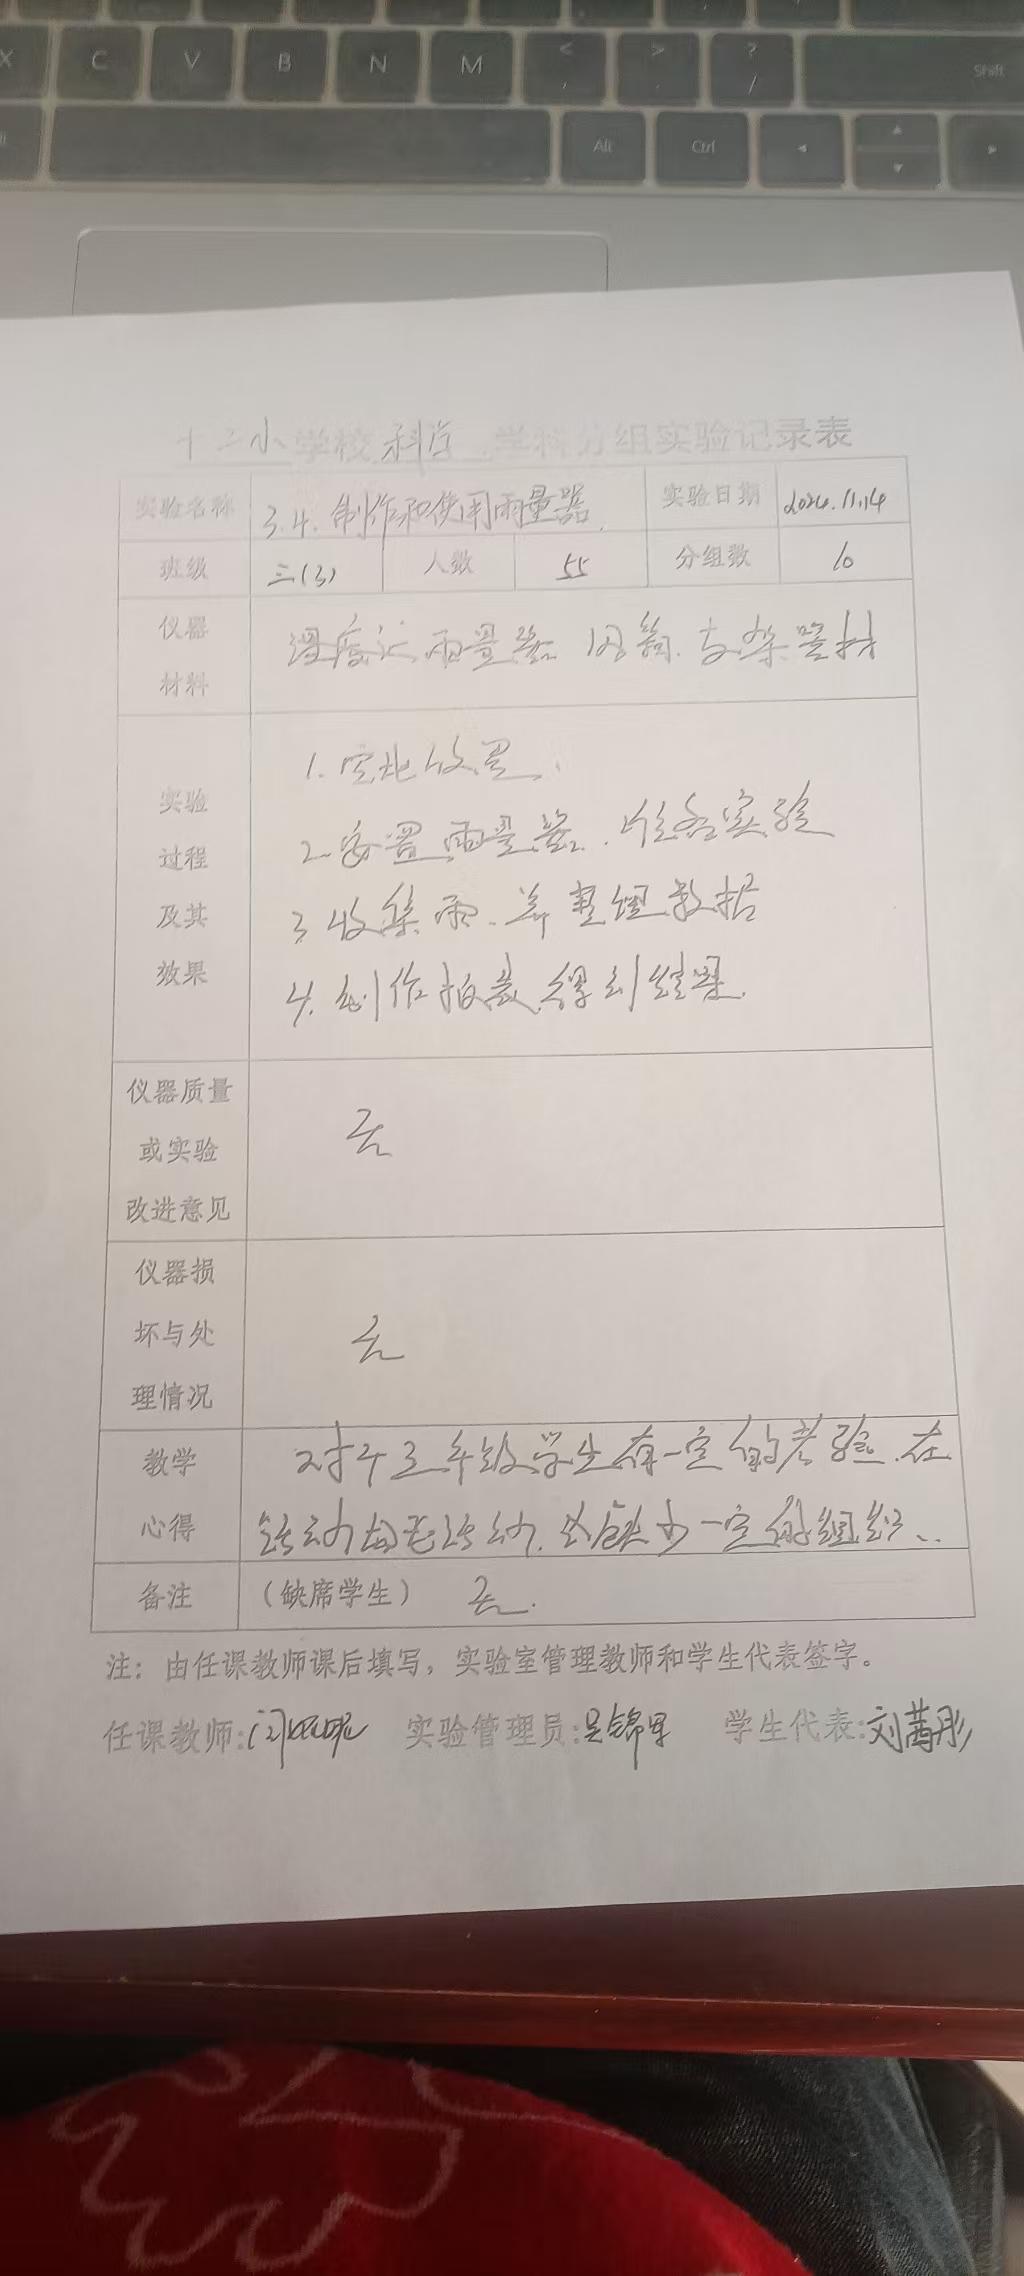 X C V B N M < , > . ? / Shift
Alt Ctrl
十二小学校科学学科分组实验记录表
实验名称 3.4.制作和使用雨量器. 实验日期 2024.11.14
班级 三(3) 人数 55 分组数 10
仪器材料 温度计 雨量器 支架等材
实验过程及其效果
1.实地放置.
2.安置雨量器.准备实验
3.收集雨.并整理数据
4.制作报表.得到结果.
仪器质量或实验改进意见 无
仪器损坏与处理情况 无
教学心得 对于三年级学生有一定的考验.在
活动.缺少一定的组织..
备注 (缺席学生) 无.
注：由任课教师课后填写，实验室管理教师和学生代表签字。
任课教师: 实验管理员: 学生代表:刘茜彤